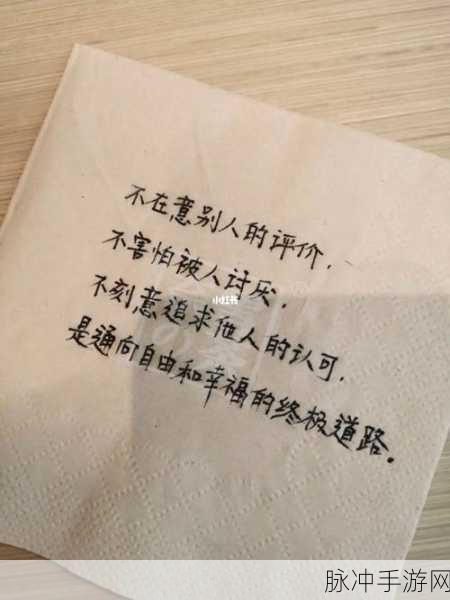 不在意别人的评价，
不害怕被人讨厌，
小红书
不刻意追求他人的认可，
是通向自由和幸福的终极道路。
脉冲手游网